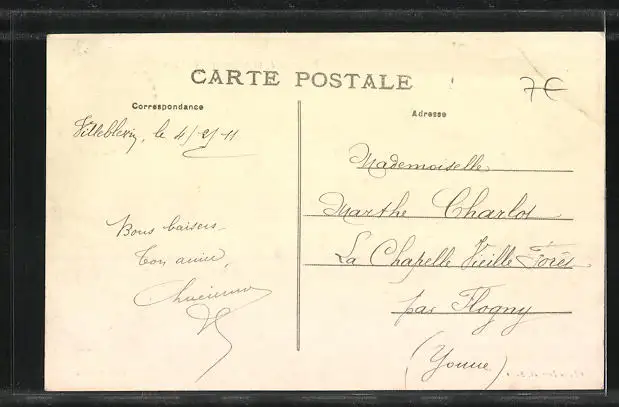 CARTE POSTALE
7€
Correspondance
Adresse
Villeblevin, le 4/2/11
Bons baisers
Ton amie,
Lucienne
Mademoiselle
Marthe Charlot
La Chapelle Vieille Forêt
par Flogny
(Yonne)